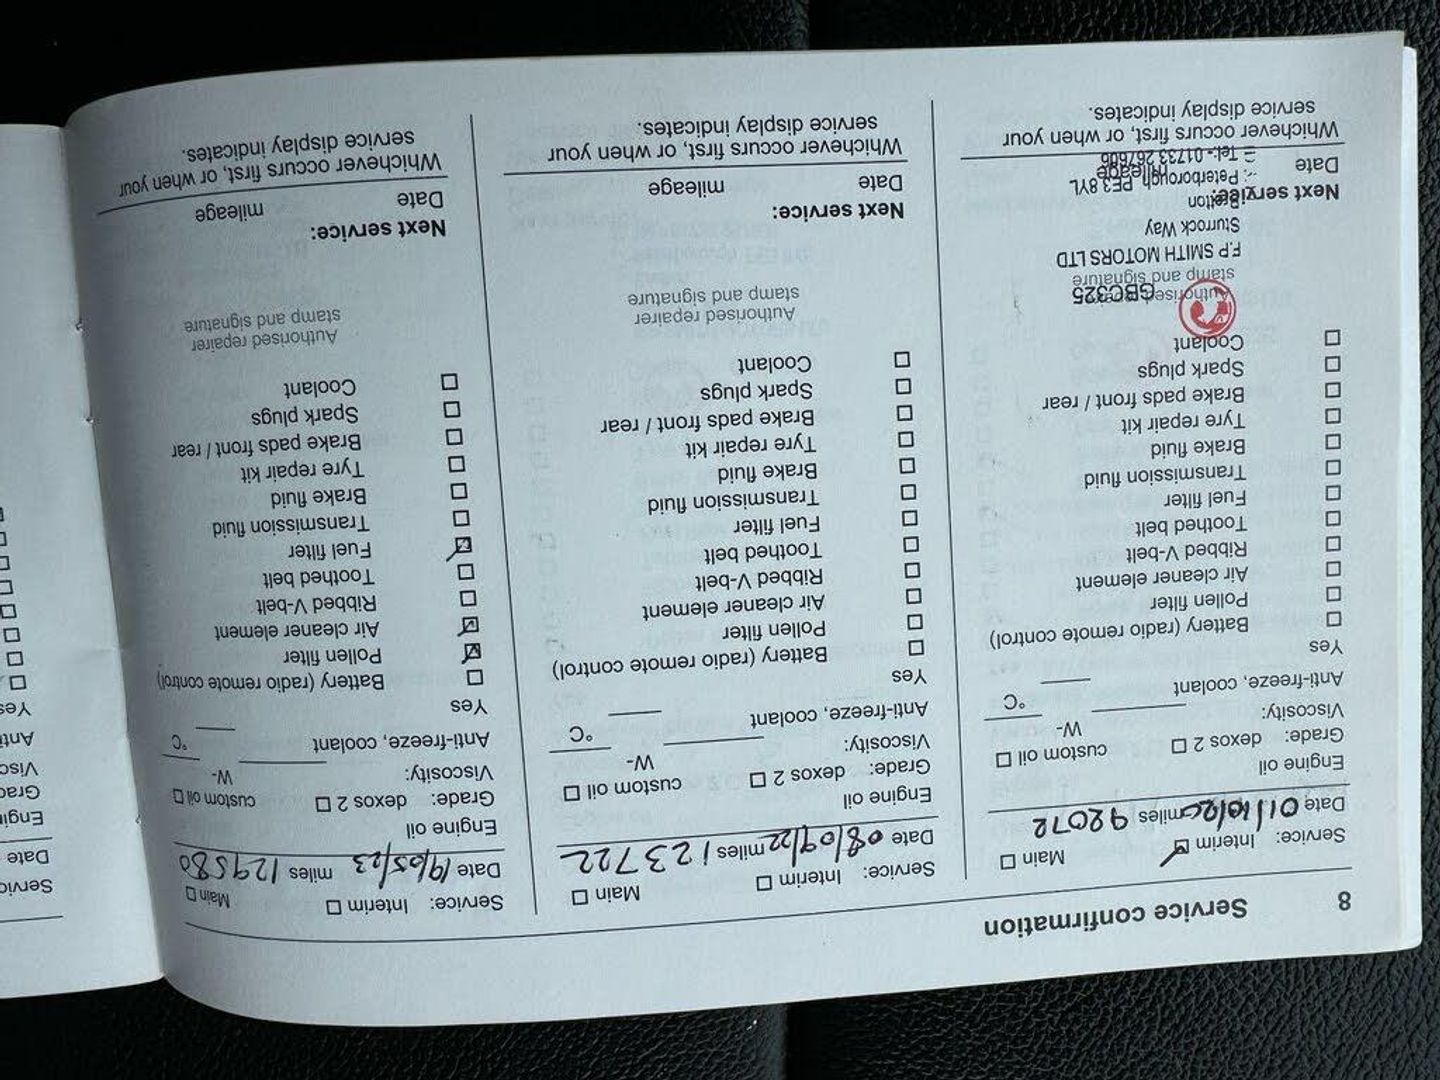 8 Service confirmation
Service: Interim Main
Date 01/10/20 miles 92072
Engine oil
Grade: dexos 2 custom oil
Viscosity: W-
Anti-freeze, coolant °C
Yes
Battery (radio remote control)
Pollen filter
Air cleaner element
Ribbed V-belt
Toothed belt
Fuel filter
Transmission fluid
Brake fluid
Tyre repair kit
Brake pads front / rear
Spark plugs
Coolant
Authorised repairer
GBC325
stamp and signature
F.P SMITH MOTORS LTD
Sturrock Way
Bretton
Next service:
Peterborough PE3 8YL
Date mileage
Tel:- 01733 267606
Whichever occurs first, or when your
service display indicates.
Service: Interim Main
Date 08/09/22 miles 123722
Engine oil
Grade: dexos 2 custom oil
Viscosity: W-
Anti-freeze, coolant °C
Yes
Battery (radio remote control)
Pollen filter
Air cleaner element
Ribbed V-belt
Toothed belt
Fuel filter
Transmission fluid
Brake fluid
Tyre repair kit
Brake pads front / rear
Spark plugs
Coolant
Authorised repairer
stamp and signature
Next service:
Date mileage
Whichever occurs first, or when your
service display indicates.
Service: Interim Main
Date 19/05/23 miles 129580
Engine oil
Grade: dexos 2 custom oil
Viscosity: W-
Anti-freeze, coolant °C
Yes
Battery (radio remote control)
Pollen filter
Air cleaner element
Ribbed V-belt
Toothed belt
Fuel filter
Transmission fluid
Brake fluid
Tyre repair kit
Brake pads front / rear
Spark plugs
Coolant
Authorised repairer
stamp and signature
Next service:
Date mileage
Whichever occurs first, or when your
service display indicates.
Date